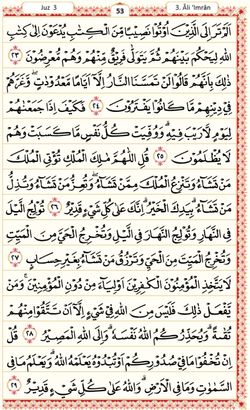 Juz 3 53 3. Âli 'Imrân
اَلَمْ تَرَ اِلَى الَّذِيْنَ اُوْتُوْا نَصِيْبًا مِّنَ الْكِتٰبِ يُدْعَوْنَ اِلٰى كِتٰبِ
اللّٰهِ لِيَحْكُمَ بَيْنَهُمْ ثُمَّ يَتَوَلّٰى فَرِيْقٌ مِّنْهُمْ وَهُمْ مُّعْرِضُوْنَ ٢٣
ذٰلِكَ بِاَنَّهُمْ قَالُوْا لَنْ تَمَسَّنَا النَّارُ اِلَّآ اَيَّامًا مَّعْدُوْدٰتٍ ۖ وَغَرَّهُمْ
فِيْ دِيْنِهِمْ مَّا كَانُوْا يَفْتَرُوْنَ ٢٤ فَكَيْفَ اِذَا جَمَعْنٰهُمْ
لِيَوْمٍ لَّا رَيْبَ فِيْهِ ۗ وَوُفِّيَتْ كُلُّ نَفْسٍ مَّا كَسَبَتْ وَهُمْ
لَا يُظْلَمُوْنَ ٢٥ قُلِ اللّٰهُمَّ مٰلِكَ الْمُلْكِ تُؤْتِى الْمُلْكَ
مَنْ تَشَآءُ وَتَنْزِعُ الْمُلْكَ مِمَّنْ تَشَآءُ ۖ وَتُعِزُّ مَنْ تَشَآءُ وَتُذِلُّ
مَنْ تَشَآءُ ۗ بِيَدِكَ الْخَيْرُ ۗ اِنَّكَ عَلٰى كُلِّ شَيْءٍ قَدِيْرٌ ٢٦ تُوْلِجُ الَّيْلَ
فِى النَّهَارِ وَتُوْلِجُ النَّهَارَ فِى الَّيْلِ ۖ وَتُخْرِجُ الْحَيَّ مِنَ الْمَيِّتِ
وَتُخْرِجُ الْمَيِّتَ مِنَ الْحَيِّ ۖ وَتَرْزُقُ مَنْ تَشَآءُ بِغَيْرِ حِسَابٍ ٢٧
لَا يَتَّخِذِ الْمُؤْمِنُوْنَ الْكٰفِرِيْنَ اَوْلِيَآءَ مِنْ دُوْنِ الْمُؤْمِنِيْنَ ۚ وَمَنْ
يَّفْعَلْ ذٰلِكَ فَلَيْسَ مِنَ اللّٰهِ فِيْ شَيْءٍ اِلَّآ اَنْ تَتَّقُوْا مِنْهُمْ
تُقٰىةً ۗ وَيُحَذِّرُكُمُ اللّٰهُ نَفْسَهٗ ۗ وَاِلَى اللّٰهِ الْمَصِيْرُ ٢٨ قُلْ
اِنْ تُخْفُوْا مَا فِيْ صُدُوْرِكُمْ اَوْ تُبْدُوْهُ يَعْلَمْهُ اللّٰهُ ۗ وَيَعْلَمُ مَا فِى
السَّمٰوٰتِ وَمَا فِى الْاَرْضِ ۗ وَاللّٰهُ عَلٰى كُلِّ شَيْءٍ قَدِيْرٌ ٢٩